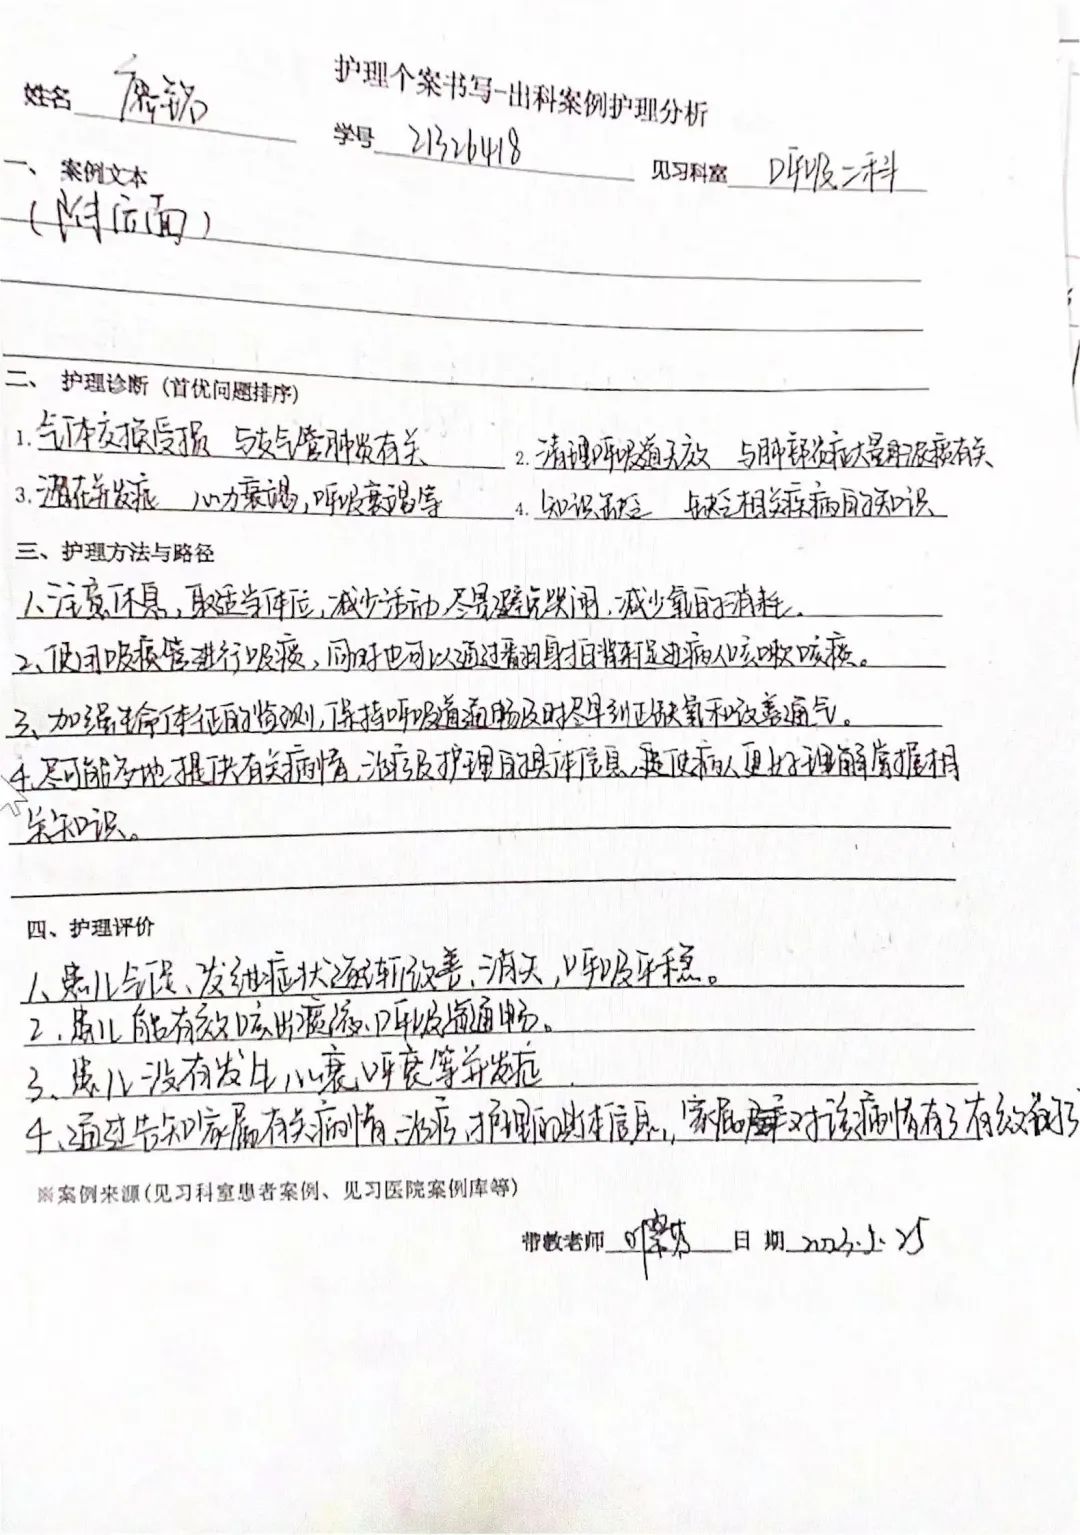 护理个案书写-出科案例护理分析
姓名 学号 21326418 见习科室 呼吸二科
一、 案例文本
(附后面)
二、 护理诊断 (首优问题排序)
1. 气体交换受损 与支气管肺炎有关 2. 清理呼吸道无效 与肺部炎症大量 痰有关
3. 潜在并发症 心力衰竭,呼吸衰竭等 4. 知识缺乏 与缺乏相关疾病的知识
三、护理方法与路径
1、注意休息,取适当体位,减少活动,尽量避免哭闹,减少氧的消耗。
2、使用吸痰管进行吸痰,同时也可以通过翻身拍背来促进病人咳嗽咳痰。
3、加强生命体征的监测,保持呼吸道通畅及时尽早纠正缺氧和改善通气。
4、尽可能多地提供有关病情,治疗及护理的具体信息,要使病人更好理解掌握相
关知识。
四、护理评价
1、患儿气促、发绀症状逐渐改善、消失,呼吸平稳。
2、患儿能有效咳出痰液、呼吸道通畅。
3、患儿没有发生心衰,呼衰等并发症
4、通过告知家属有关病情、治疗,护理的具体信息,家属 对该病情有了有效
※案例来源(见习科室患者案例、见习医院案例库等)
带教老师 日 期 2023.5.25